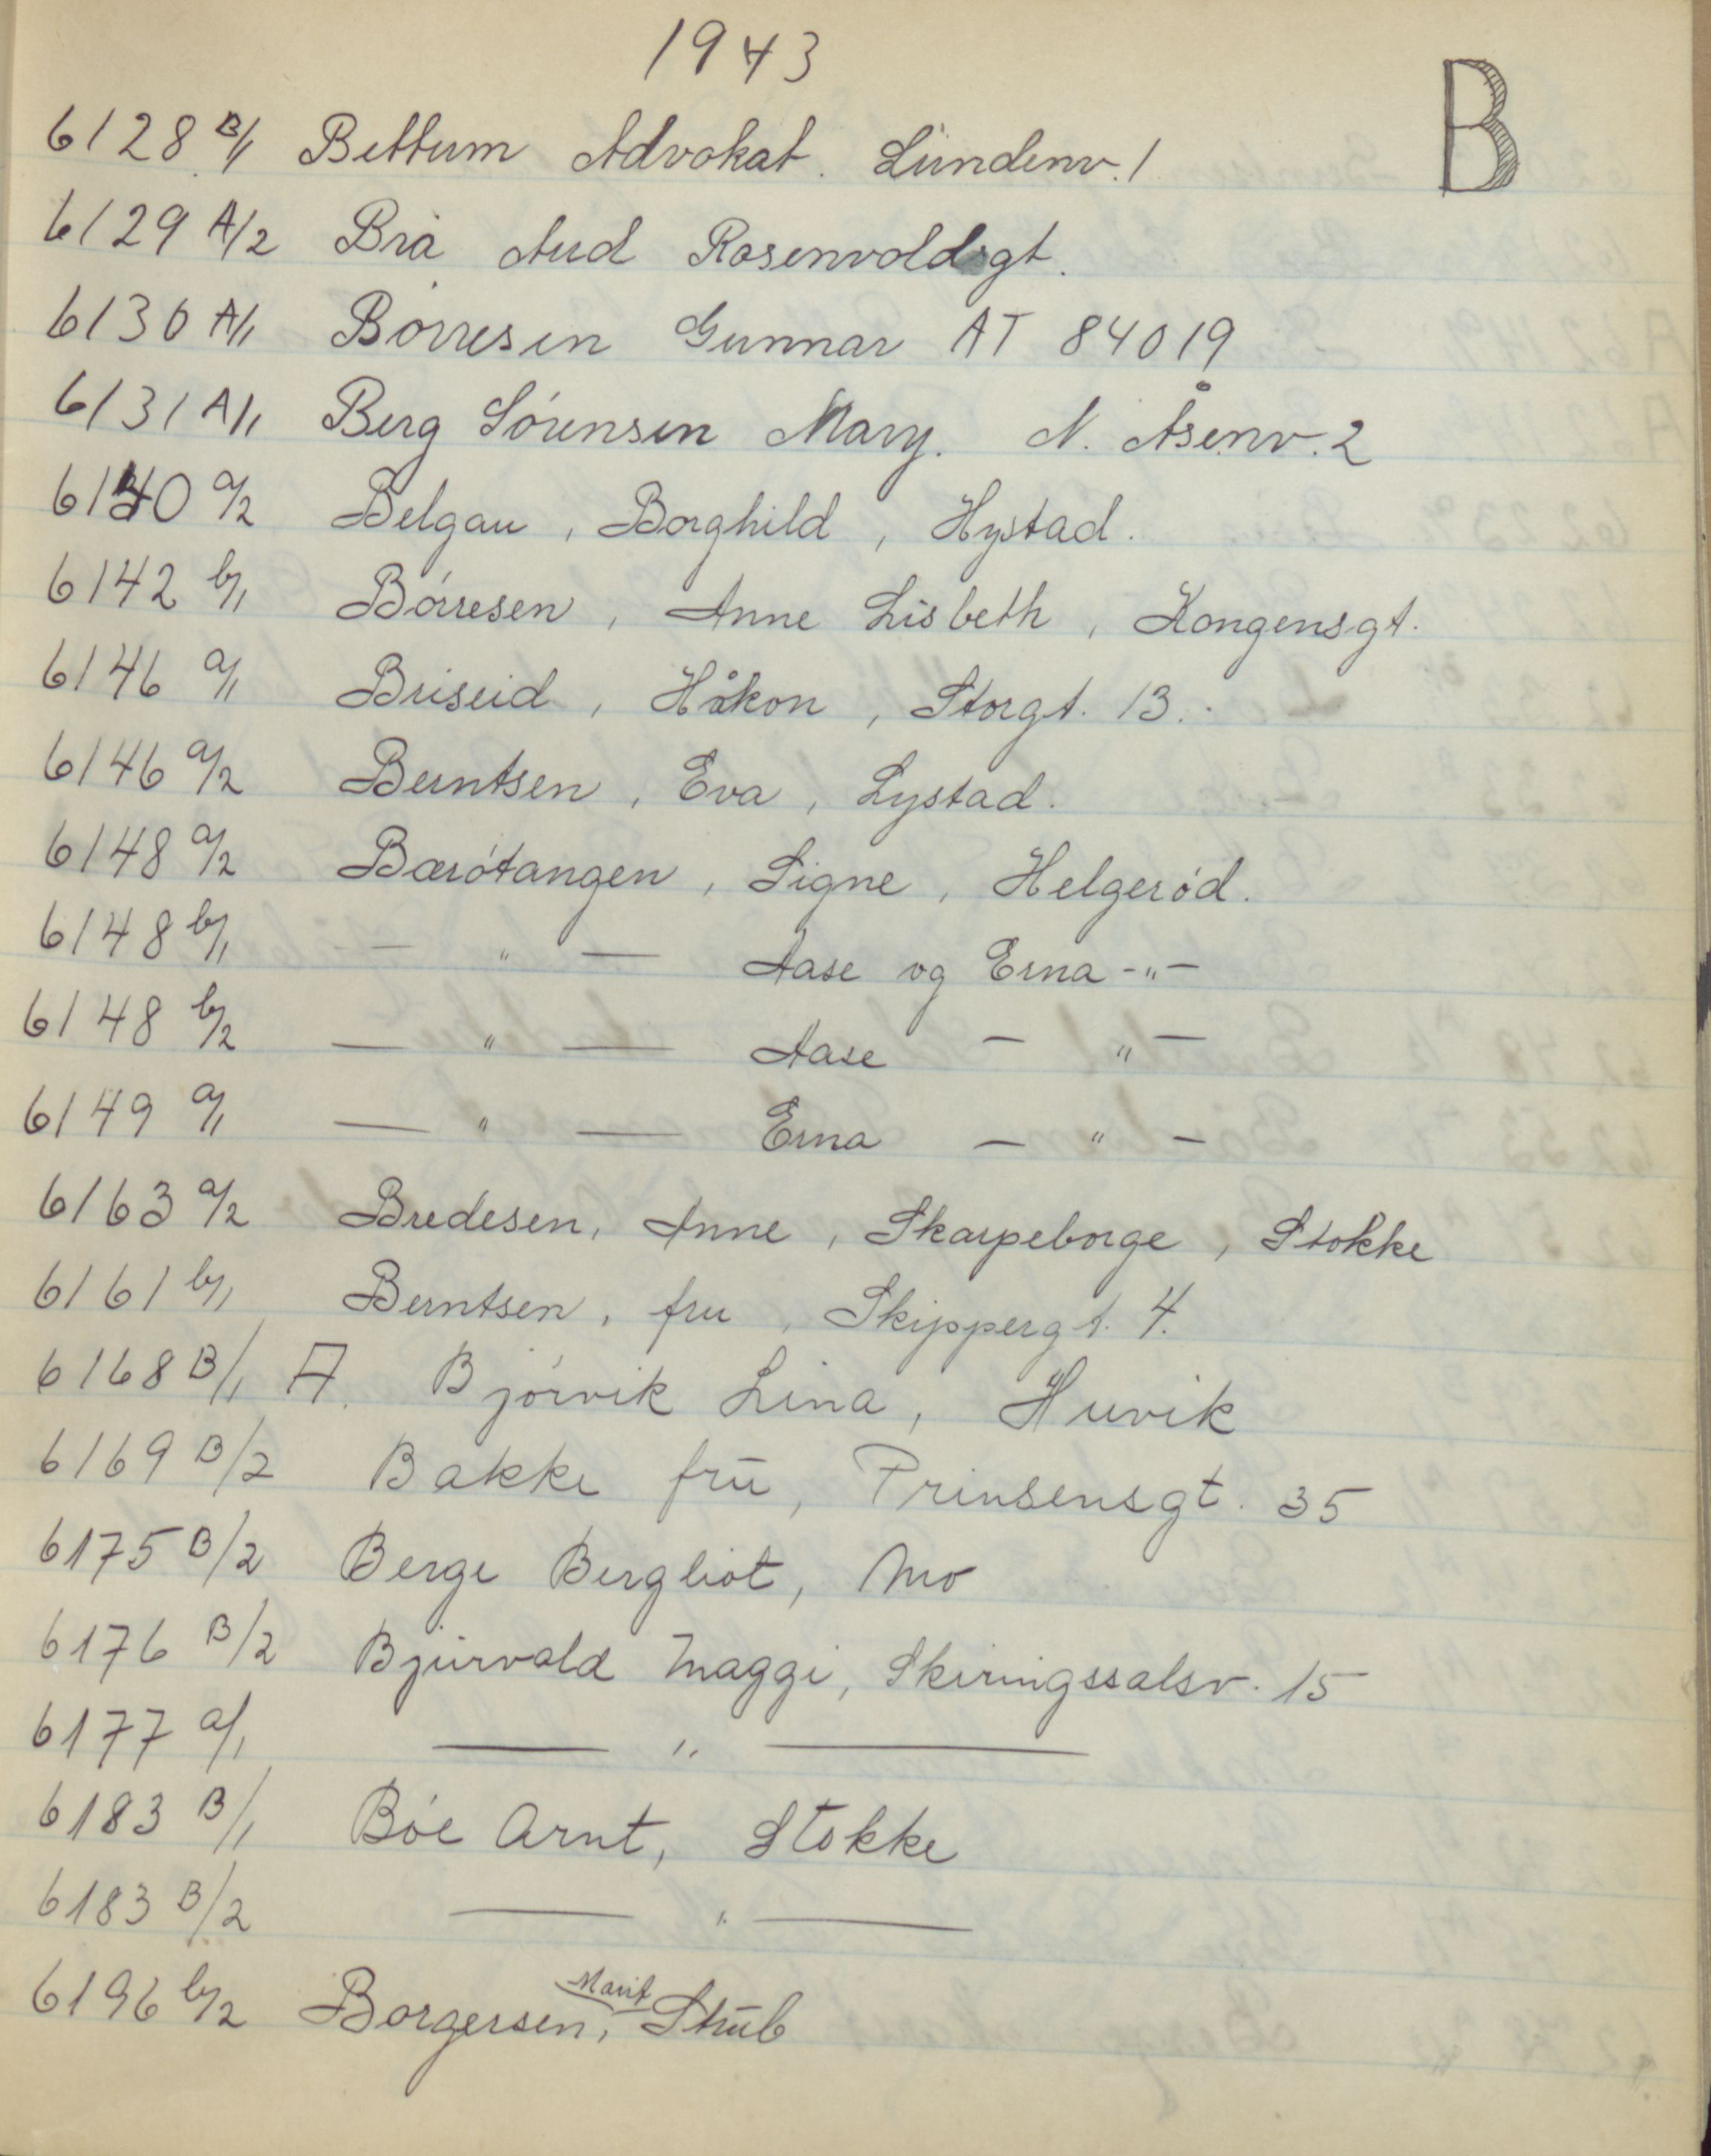 1943
B
6128 B/1 Bettum Advokat. Lundenv. 1
6129 A/2 Brå Aud Rosenvoldsgt.
6130 A/1 Börresen Gunnar AT 84019
6131 A/1 Berg Sörensen Mary. N. Åsenv. 2
6140 a/2 Belgau, Borghild, Hystad.
6142 b/1 Börresen, Anne Lisbeth, Kongensgt.
6146 a/1 Briseid, Håkon, Storgt. 13.
6146 a/2 Berntsen, Eva, Lystad.
6148 a/2 Bærótangen, Signe, Helgeród.
6148 b/1 — " — Aase og Erna -"-
6148 b/2 — " — Aase — " —
6149 a/1 — " — Erna — " —
6163 a/2 Bredesen, Anne, Skarpeborge, Stokke
6161 b/1 Berntsen, fru, Skippergt. 4.
6168 B/1 A. Bjórvik Lina, Huvik
6169 B/2 Bakke frū, Prinsensgt. 35
6175 B/2 Berge Bergliot, Mo
6176 B/2 Bjurvald Maggi, Skiringssalsv. 15
6177 a/1 — " —
6183 B/1 Bóe Arnt, Stokke
6183 B/2 — " —
6196 b/2 Borgersen, Marit Stūb